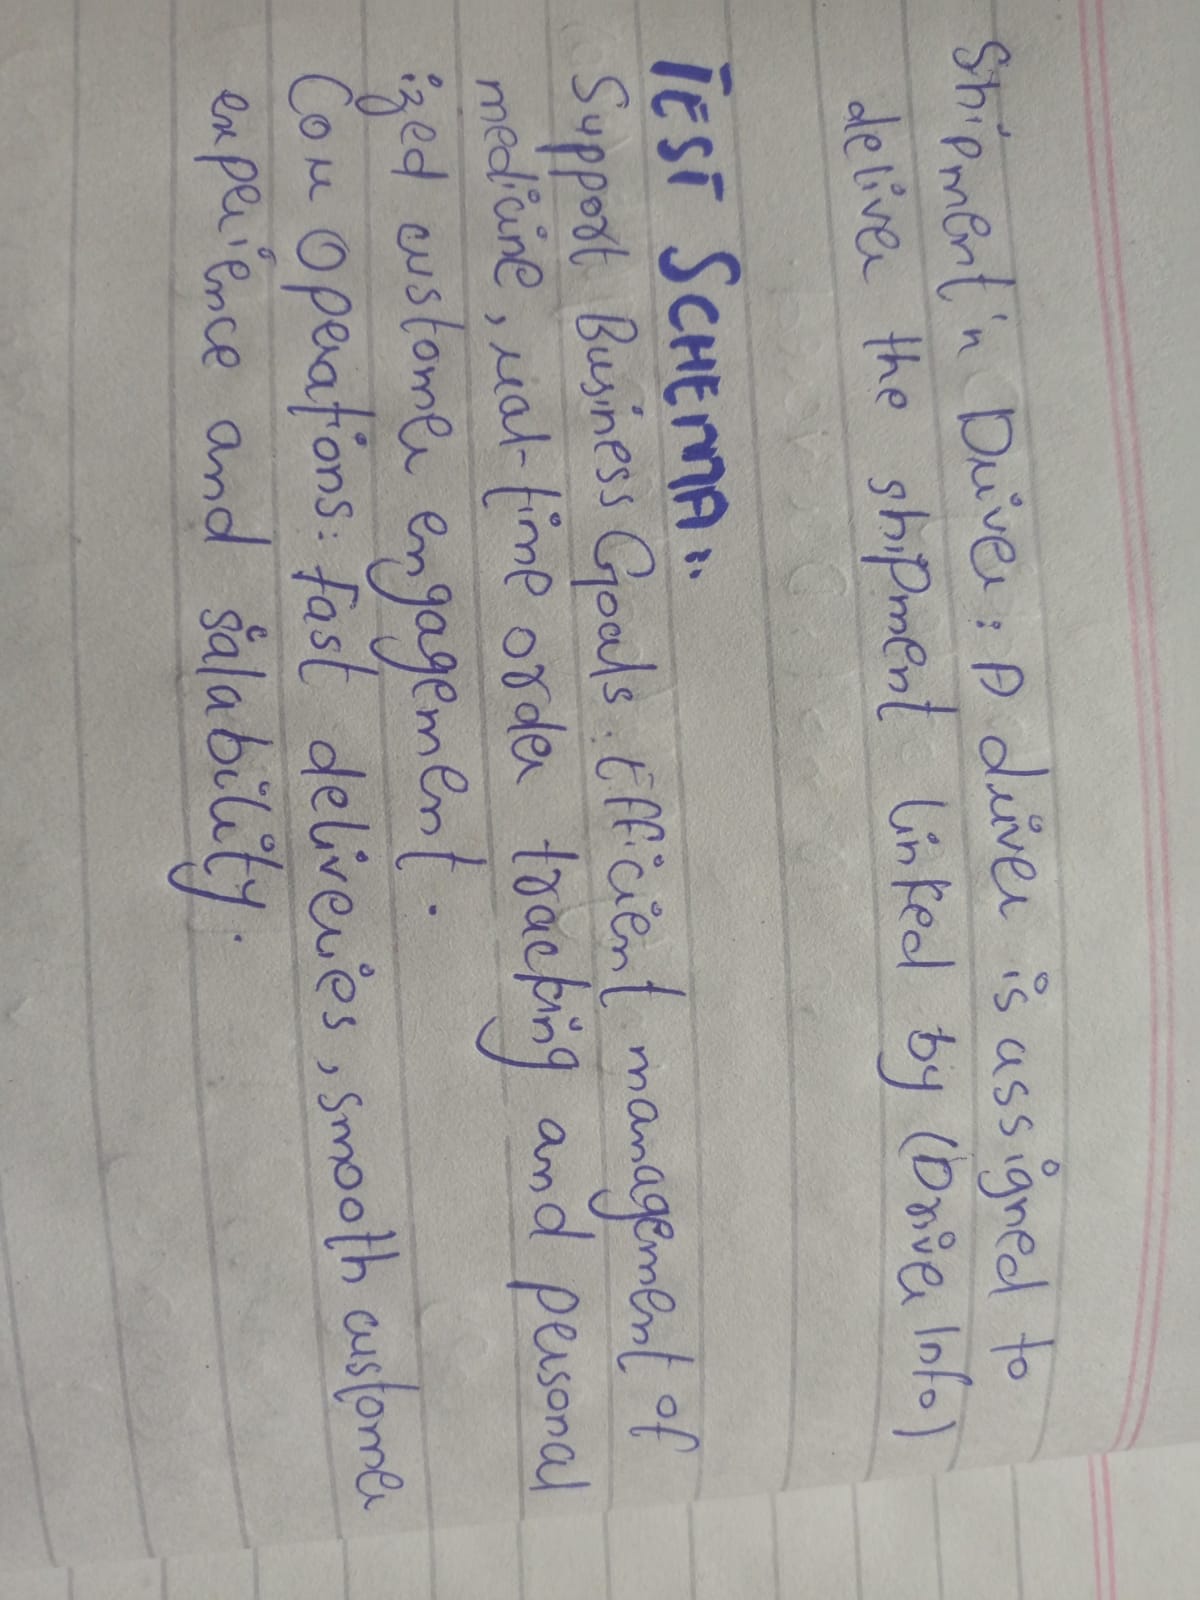 Shipment 'n Driver: A driver is assigned to
deliver the shipment linked by (Driver Info)
TEST SCHEMA:
Support Business Goals: Efficient management of
medicine, real-time order tracking and personal
ized customer engagement.
Core Operations: fast deliveries, smooth customer
experience and salability.